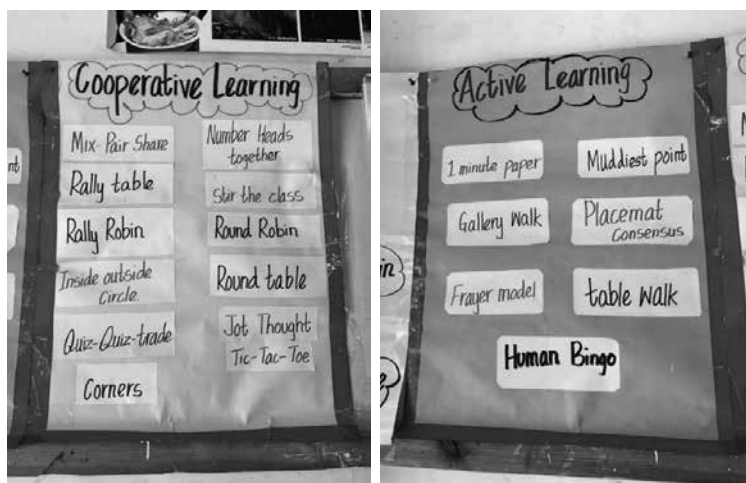 Cooperative Learning
Mix-Pair Share
Rally table
Rally Robin
Inside outside
Circle.
Quiz-Quiz-trade
Corners
Number Heads
together
Stir the class
Round Robin
Round table
Jot Thought
Tic-Tac-Toe
Active Learning
1 minute paper
Muddiest point
Gallery Walk
Placemat
Consensus
Frayer model
table walk
Human Bingo